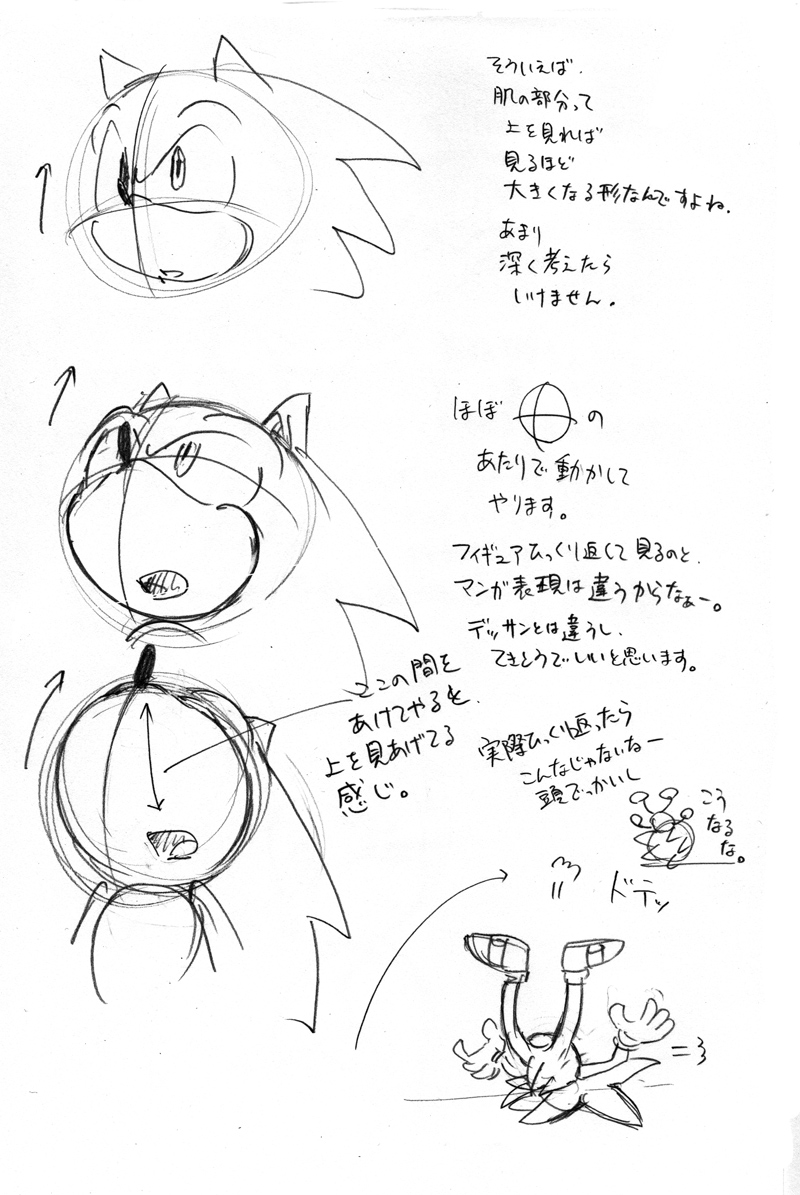 そういえば、
肌の部分って
上を見れば
見るほど
大きくなる形なんですよね。
あまり
深く考えたら
いけません。
ほぼ の
あたりで動かして
やります。
フィギュアひっくり返して見るのと、
マンガ表現は違うからなぁー。
デッサンとは違うし、
てきとうでいいと思います。
ここの間を
あけてやると、
上を見あげてる
感じ。
実際ひっくり返ったら
こんなじゃないなー
頭でっかいし
こう
なるな。
ドテッ